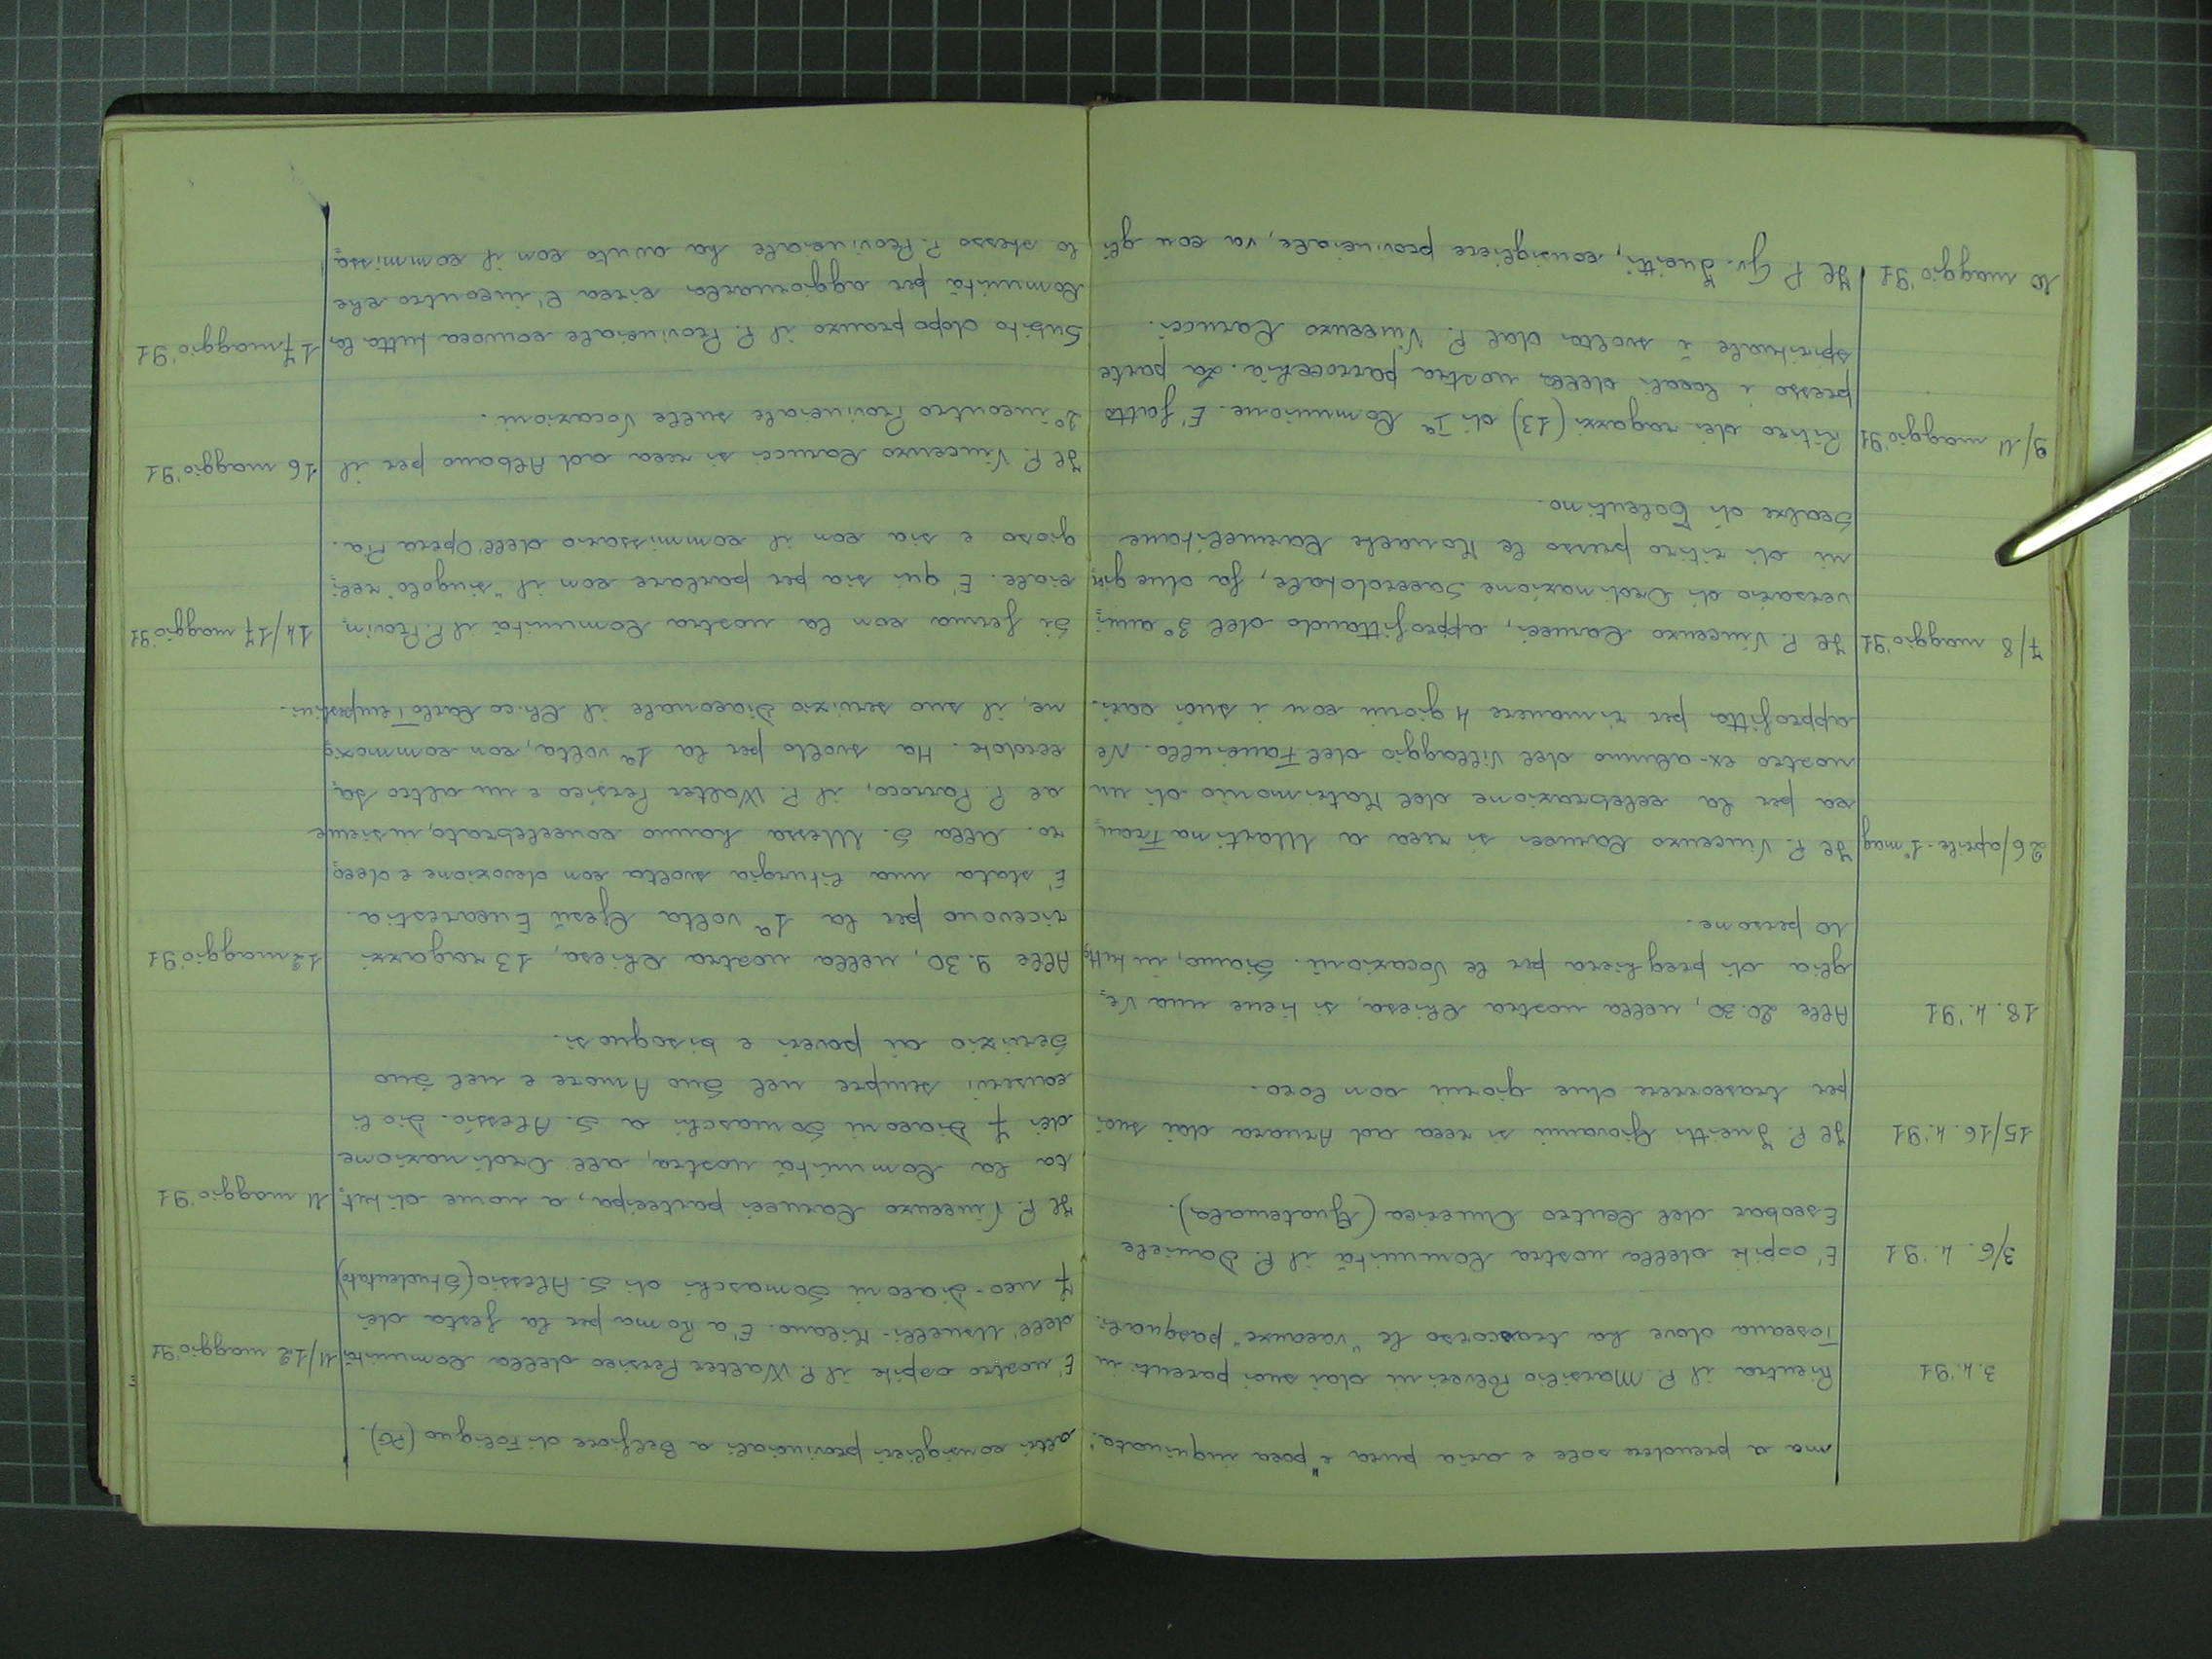 ma a prendere sole e aria pura e "poca inquinata".
3.4.'91 Rientra il P. Marsilio Polverini dai suoi parenti in
Toscana dove ha trascorso le "vacanze" pasquali.
3/6.4.'91 E' ospite della nostra Comunità il P. Daniele
Escobar del Centro America (Guatemala).
15/16.4.'91 Il P. Jueitti Giovanni si reca ad Arnara dai suoi
per trascorrere due giorni con loro.
18.4.'91 Alle 20.30, nella nostra Chiesa, si tiene una Ve,
glia di preghiera per le Vocazioni. Siamo, in tutto,
10 persone.
26/aprile-1° mag Il P. Vincenzo Carucci si reca a Martina Fran,
ca per la celebrazione del Matrimonio di un
nostro ex-alunno del Villaggio del Fanciullo. Ne
approfitta per rimanere 4 giorni con i suoi cari.
7/8 maggio '91 Il P. Vincenzo Carucci, approfittando del 3° anni,
versario di Ordinazione Sacerdotale, fa due gior,
ni di ritiro presso le Monache Carmelitane
Scalze di Tolentino.
9/11 maggio '91 Ritiro dei ragazzi (13) di Iª Comunione. E' fatto
presso i locali della nostra parrocchia. La parte
spirituale è svolta dal P. Vincenzo Carucci.
10 maggio '91 Il P. Gv. Jueitti, consigliere provinciale, va con gli
altri consiglieri provinciali a Belfiore di Foligno (PG).
11/12 maggio '91 E' nostro ospite il P. Walter Persico della Comunità
dell'Usuelli-Milano. E' a Roma per la festa dei
7 neo-Diaconi Somaschi di S. Alessio (Studentato)
11 maggio '91 Il P. Vincenzo Carucci partecipa, a nome di tut,
ta la Comunità nostra, all'Ordinazione
dei 7 Diaconi Somaschi a S. Alessio. Dio li
conservi sempre nel Suo Amore e nel Suo
Servizio ai poveri e bisognosi.
12 maggio '91 Alle 9.30, nella nostra Chiesa, 13 ragazzi
ricevono per la 1ª volta Gesù Eucarestia.
E' stata una liturgia svolta con devozione e deco,
ro. Alla S. Messa hanno concelebrato, insieme
al P. Parroco, il P. Walter Persico e un altro sa,
cerdote. Ha svolto per la 1ª volta, con commozio,
ne, il suo servizio Diaconale il Ch.co Carlo Tempestini.
14/17 maggio '91 Si ferma con la nostra Comunità il P. Provin,
ciale. E' qui sia per parlare con il "singolo" reli,
gioso e sia con il commissario dell'Opera Pia.
16 maggio '91 Il P. Vincenzo Carucci si reca ad Albano per il
2° incontro Provinciale sulle Vocazioni.
17 maggio '91 Subito dopo pranzo il P. Provinciale convoca tutta la
Comunità per aggiornarla circa l'incontro che
lo stesso P. Provinciale ha avuto con il commissa,